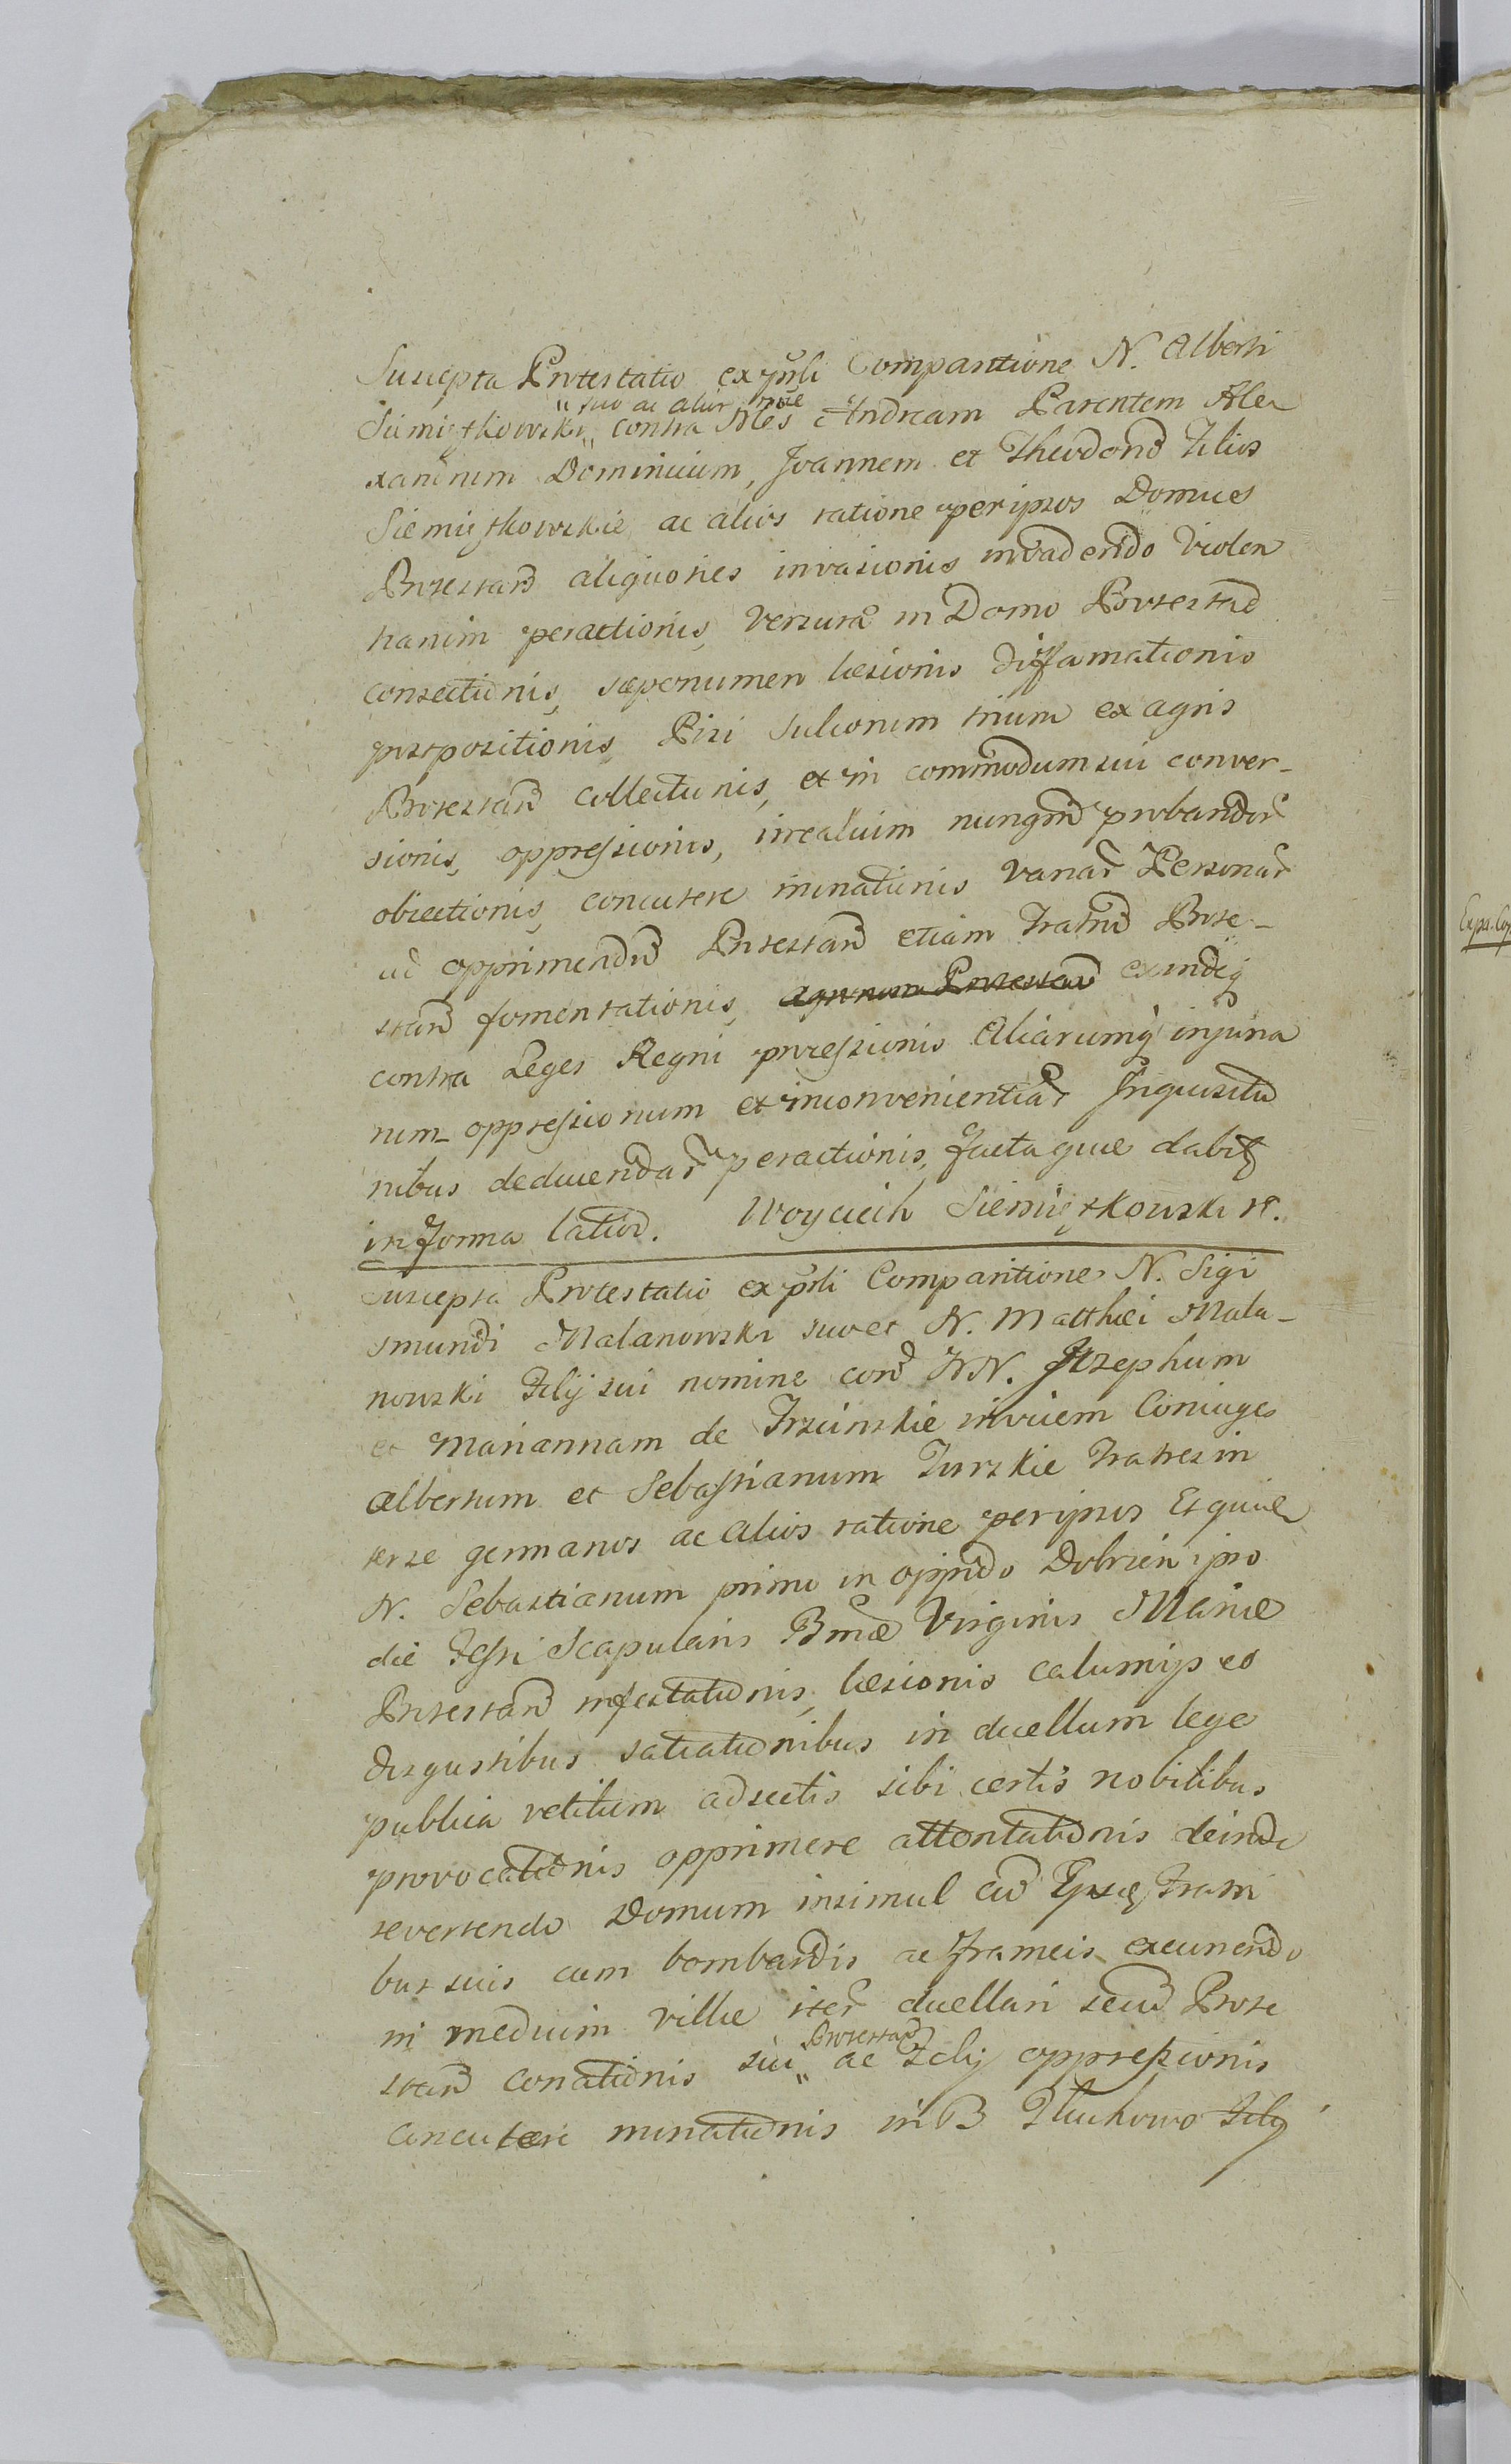 Suscepta Protestatio ex p̃nli Comparitione N. Alberti
Siemiątkowski „ suo ac alior̃ noĩe „ contra Nles Andream Parentem Ale
xandrum Dominicum, Joannem et Theodorũ Filios
Siemiątkowskie ac alios ratione per ipsos Domus
Protestañ aliquoties invasionis invadendo violen
tiarum peractionis, versurã in Domo Protestañ
consectionis, sæpenumero læsionis diffamationis
præpositionis Pisi sulcorum trium ex agris
Protestañ collectionis, et in commodum sui conver-
sionis, oppressionis, irrealium nunqm̃ probandor̃
obiectionis, concutere minationis variar̃ Personar̃
ad opprimendũ Protestañ etiam Fratrũ Prote-
stañ fomentationis, exindeq
contra Leges Regni processionis Aliarumq injuria
rum oppressionum et inconvenientiar̃ Inquisitio
nibus deducendar̃ peractionis, facta que dabit
in forma latiori. Woyciech Siemiątkowski
Suscepta Protestatio ex p̃nli Comparitione N. Sigi
smundi Malanowski suo et N. Matthæi Mala-
nowski Filij sui nomine con̄ NN. Josephum
et Mariannam de Trzcinskie invicem Coniuges
Albertum et Sebastianum Turskie Fratres in
ter se germanos ac alios ratione per ipsos Et quide
N. Sebastianum primo in oppido Dobrzen ipso
die Festi Scapularis Bmæ Virginis Mariæ
Protestañ infestationis, læsionis calumijs et
disgustibus satiationibus in duellum lege
publica vetitum adscitis sibi certis nobilibus
provocationis opprimere attentationis deinde
revertendo Domum insimul cũ Fratri
bus suis cum bombardis ac frameis exeunendo
in medium villæ iter̃ duellari secũ Prote
stañ conationis sui „ Protestañ „ ac Filij oppressionis
concutere minationis in B Tłuchowo Filij